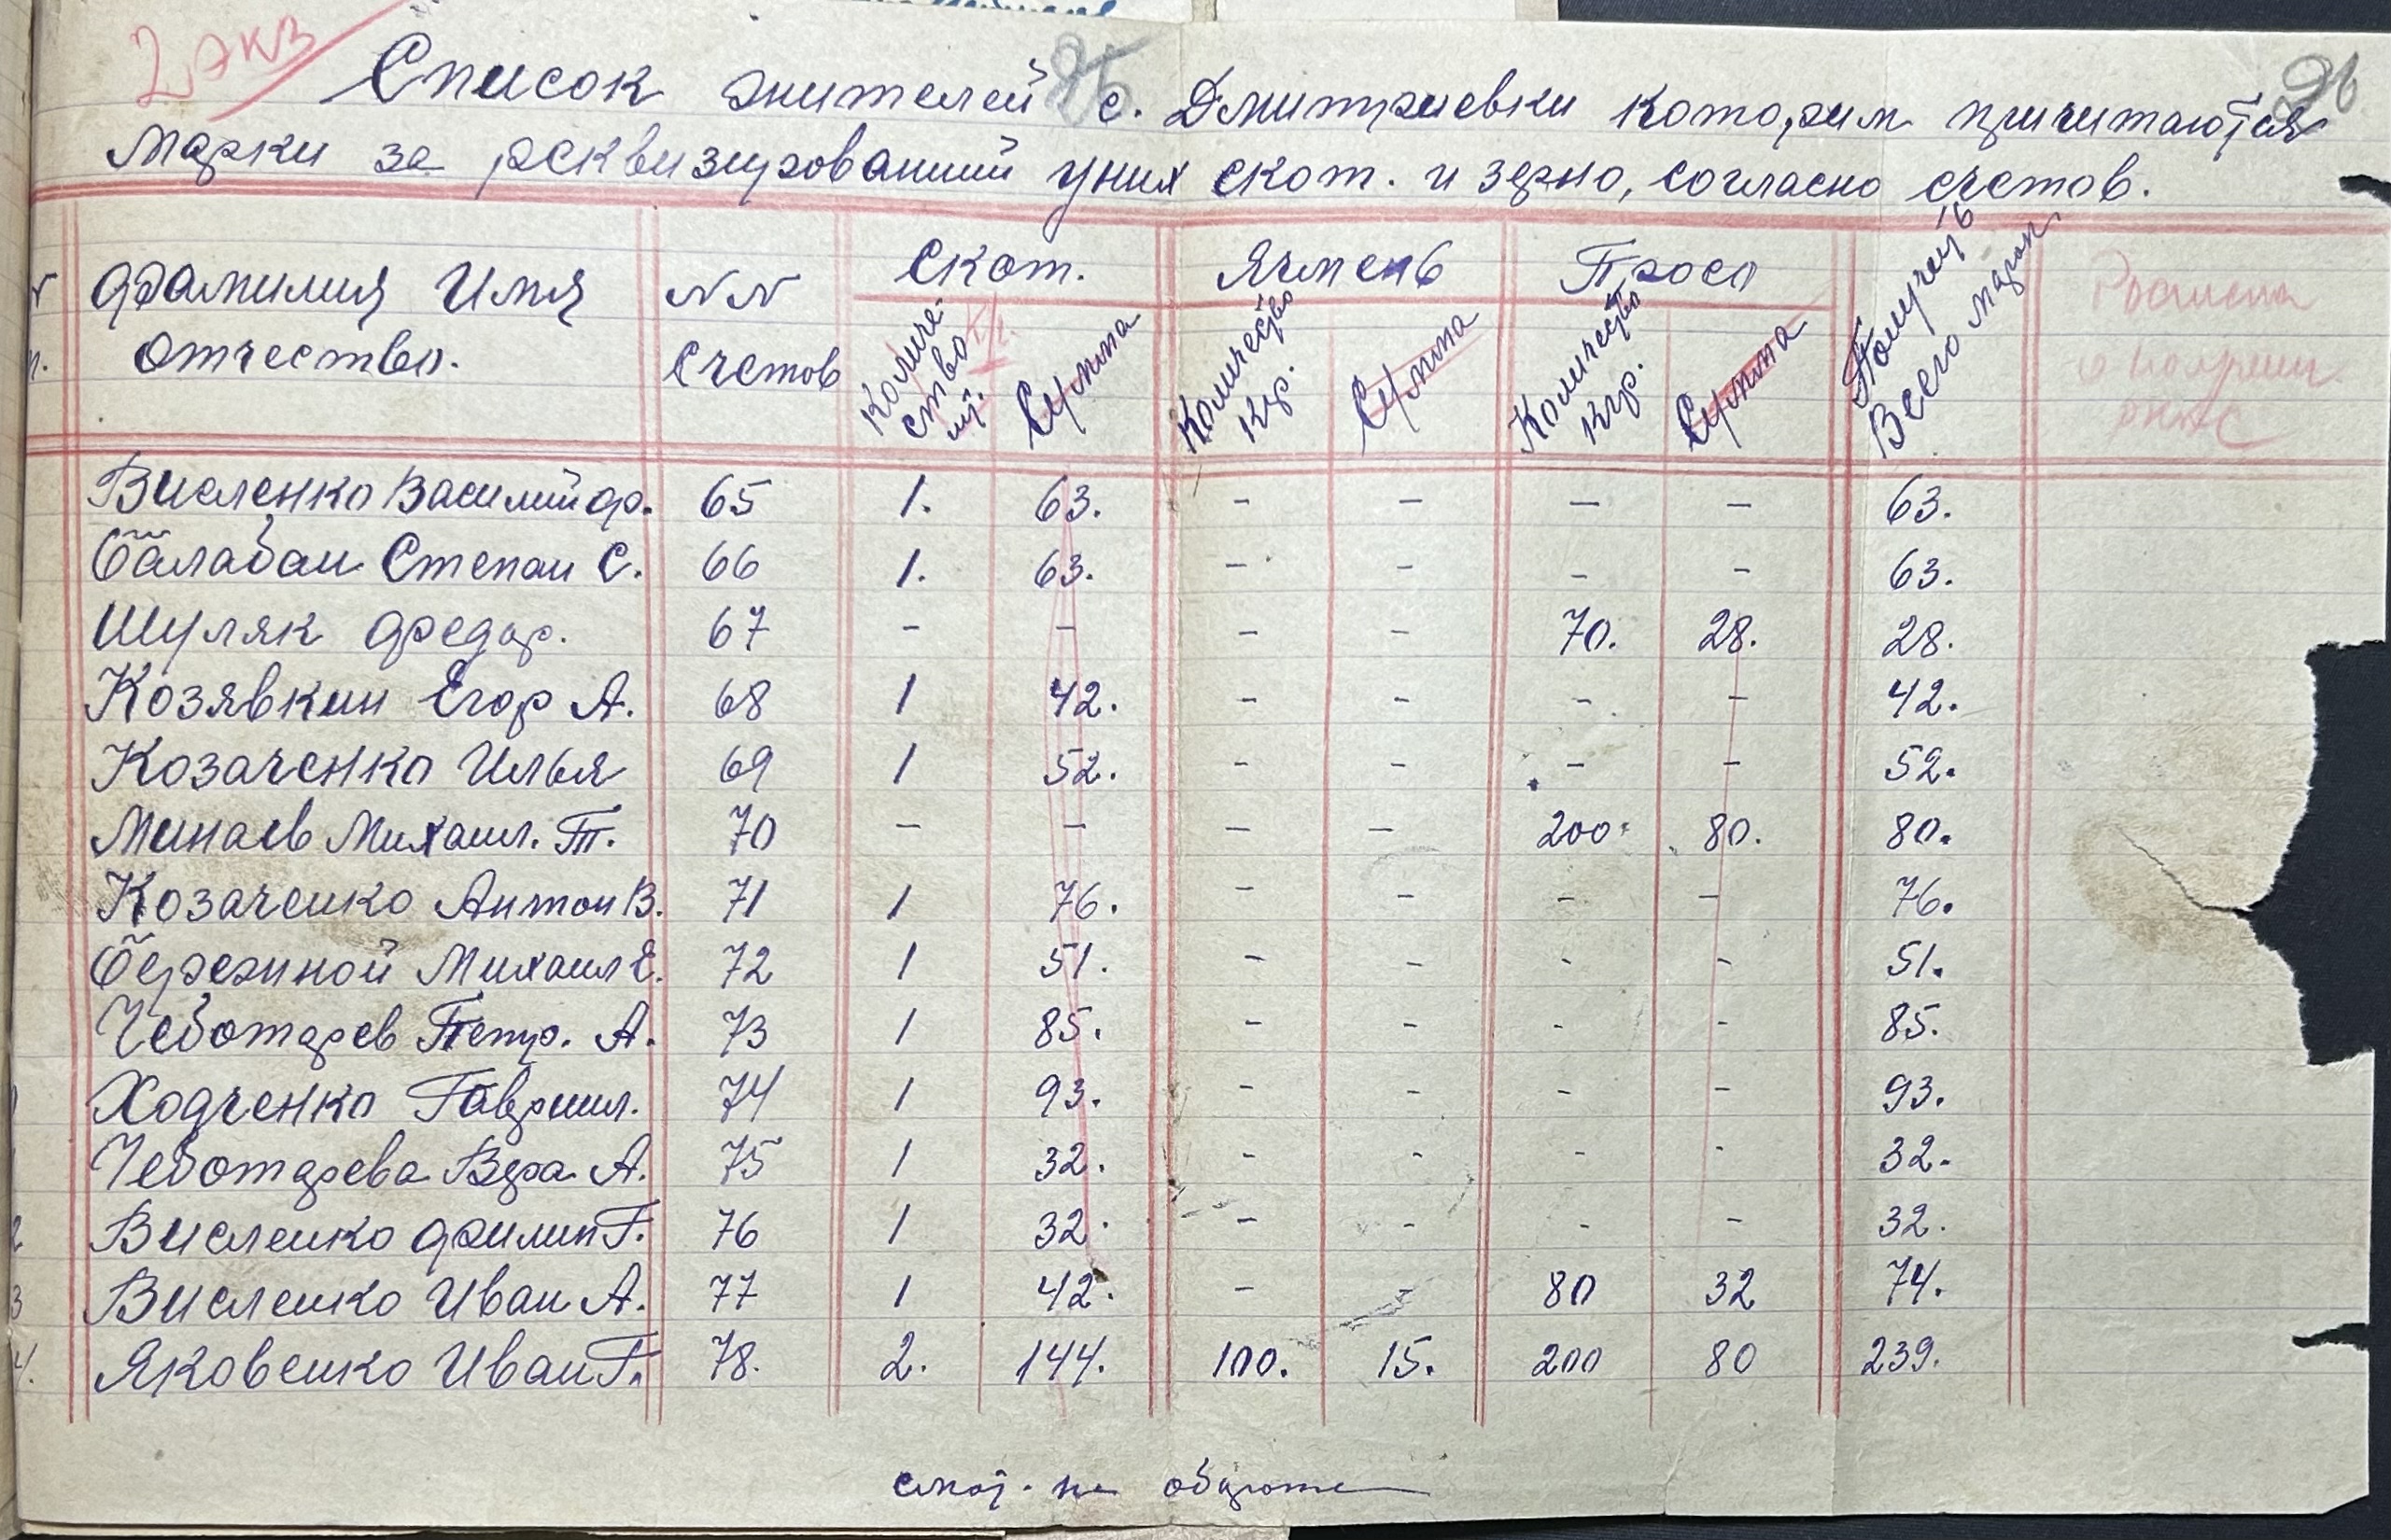 2 экз
95
96
Список жителей с. Дмитриевки которим причитаются
марки за реквизированний у них скот. и зерно, согласно счетов.
Фамилия Имя Отчество. NN Счетов Скот. Ячмень Просо Получить Всего марок
Количество шт. Сумма Количество кгр. Сумма Количество кгр. Сумма
Висленко Василий Ф. 65 1. 63. - - - - 63.
Балабан Степан С. 66 1. 63. - - - - 63.
Шуляк Федор. 67 - - - - 70. 28. 28.
Козявкин Егор А. 68 1 42. - - - - 42.
Козаченко Илья 69 1 52. - - - - 52.
Минаев Михаил. Т. 70 - - - - 200. 80. 80.
Козаченко Антон В. 71 1 76. - - - - 76.
Бережной Михаил Е. 72 1 51. - - - - 51.
Чеботарев Петр. А. 73 1 85. - - - - 85.
Ходченко Гавриил. 74 1 93. - - - - 93.
Чеботарева Вера А. 75 1 32. - - - - 32.
2 Висленко Филип Г. 76 1 32. - - - - 32.
3 Висленко Иван А. 77 1 42. - - 80 32 74.
4. Яковенко Иван Г. 78. 2. 144. 100. 15. 200 80 239.
смот. на обороте